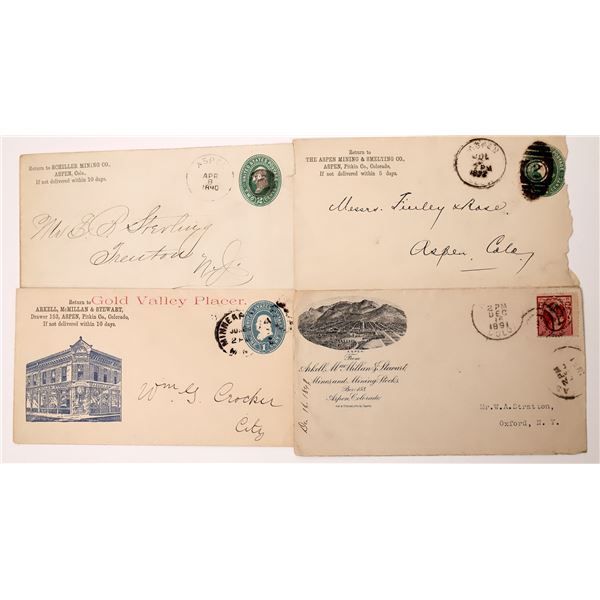 Return to SCHILLER MINING CO.,
ASPEN, Colo.,
If not delivered within 10 days.
ASPEN
APR
8
1890
2
Mr E. B. Sterling
Trenton
N. J.
Return to
THE ASPEN MINING & SMELTING CO.,
ASPEN, Pitkin Co., Colorado,
If not delivered within 5 days.
ASPEN
2 PM
1892
2
Messrs. Finley & Rose.
Aspen, Colo.
Return to
Gold Valley Placer.
ARKELL, McMILLAN & STEWART,
Drawer 153, ASPEN, Pitkin Co., Colorado,
If not delivered within 10 days.
MINNEA
1
Wm G. Crocker
City
ASPEN
From
Arkell, McMillan & Stewart,
Mines and Mining Stocks,
Box 153
Aspen, Colorado
2 PM
DEC
1891
COLO
Mr. W. A. Stratton,
Oxford, N. Y.